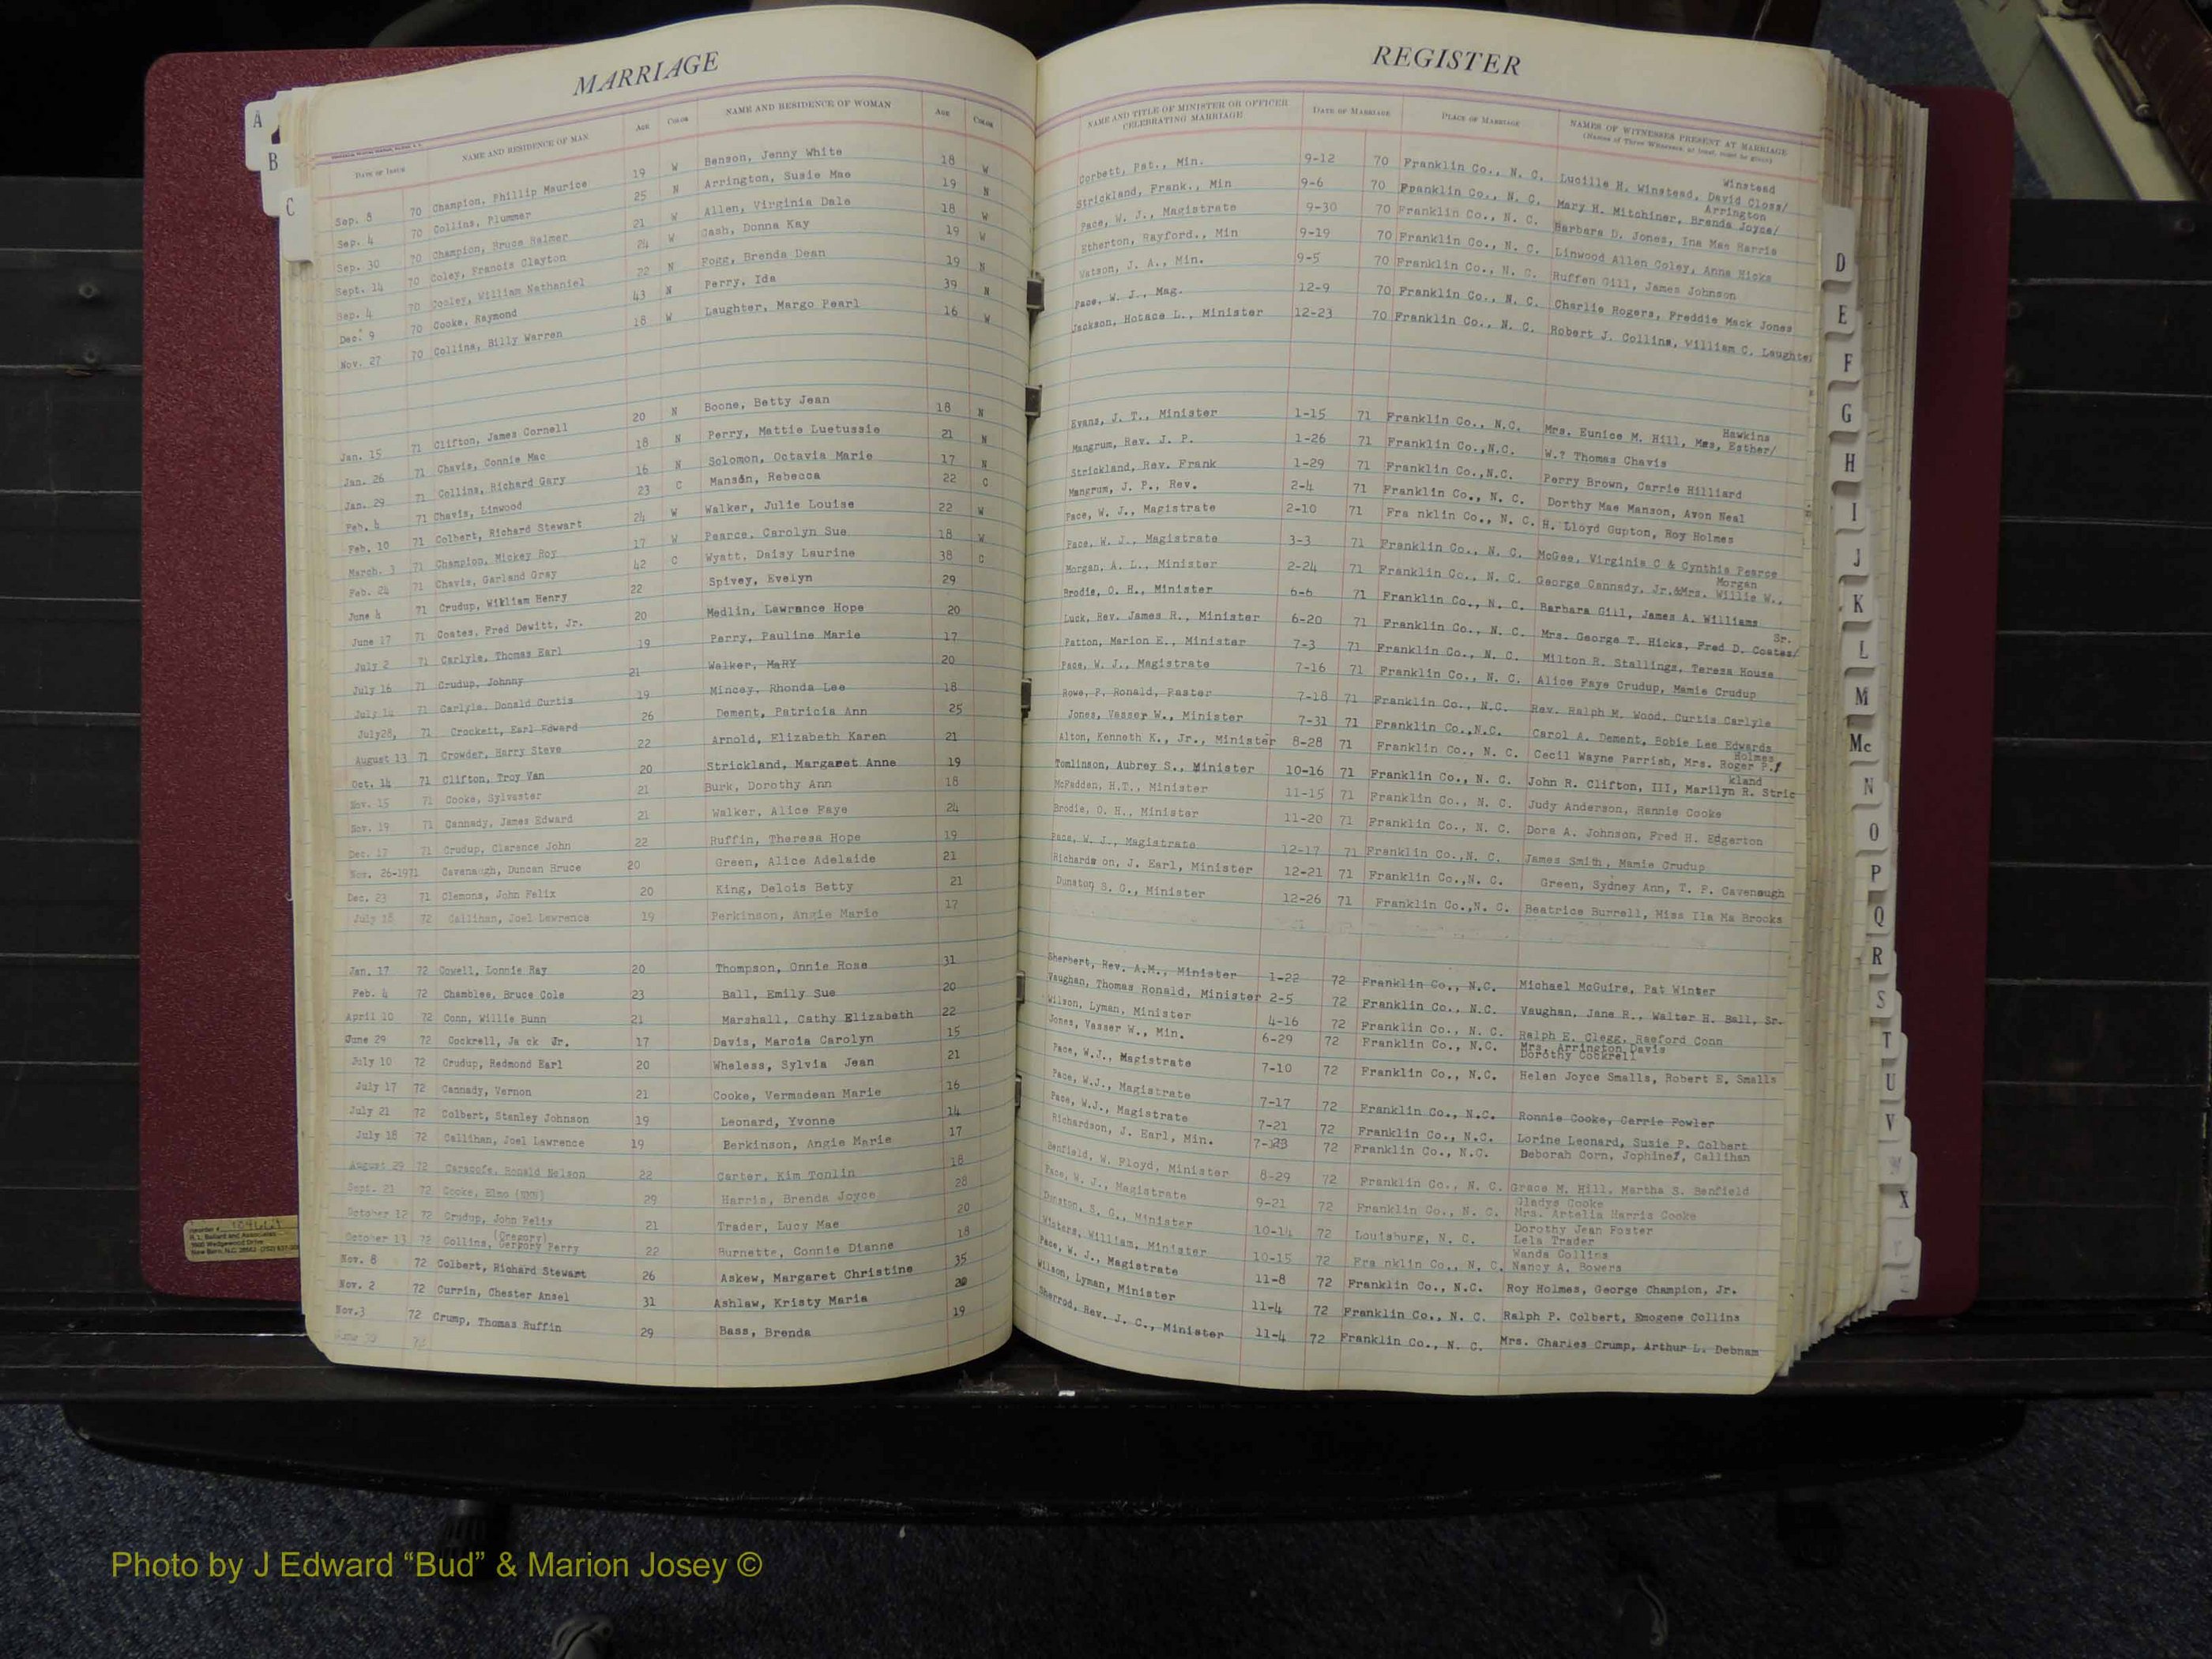 MARRIAGE
REGISTER
DATE OF ISSUE NAME AND RESIDENCE OF MAN AGE COLOR NAME AND RESIDENCE OF WOMAN AGE COLOR NAME AND TITLE OF MINISTER OR OFFICER CELEBRATING MARRIAGE DATE OF MARRIAGE PLACE OF MARRIAGE NAMES OF WITNESSES PRESENT AT MARRIAGE
(Names of Three Witnesses, at least, must be given)
Winstead
Sep. 8 70 Champion, Phillip Maurice 19 W Benson, Jenny White 18 W Corbett, Pat., Min. 9-12 70 Franklin Co., N. C. Lucille H. Winstead, David Closs/
Arrington
Sep. 4 70 Collins, Plummer 25 N Arrington, Susie Mae 19 N Strickland, Frank., Min 9-6 70 Franklin Co., N. C. Mary H. Mitchiner, Brenda Joyce/
Sep. 30 70 Champion, Bruce Helmer 21 W Allen, Virginia Dale 18 W Pace, W. J., Magistrate 9-30 70 Franklin Co., N. C. Barbara D. Jones, Ina Mae Harris
Sept. 14 70 Coley, Francis Clayton 24 W Cash, Donna Kay 19 W Etherton, Rayford., Min 9-19 70 Franklin Co., N. C. Linwood Allen Coley, Anna Hicks
Sep. 4 70 Cooley, William Nathaniel 22 N Fogg, Brenda Dean 19 N Watson, J. A., Min. 9-5 70 Franklin Co., N. C. Ruffen Gill, James Johnson
Dec. 9 70 Cooke, Raymond 43 N Perry, Ida 39 N Pace, W. J., Mag. 12-9 70 Franklin Co., N. C. Charlie Rogers, Freddie Mack Jones
Nov. 27 70 Collins, Billy Warren 18 W Laughter, Margo Pearl 16 W Jackson, Hotace L., Minister 12-23 70 Franklin Co., N. C. Robert J. Collins, William C. Laughter
Hawkins
Jan. 15 71 Clifton, James Cornell 20 N Boone, Betty Jean 18 N Evans, J. T., Minister 1-15 71 Franklin Co., N.C. Mrs. Eunice M. Hill, Mrs, Esther/
Jan. 26 71 Chavis, Connie Mac 18 N Perry, Mattie Luetussie 21 N Mangrum, Rev. J. P. 1-26 71 Franklin Co.,N.C. W.? Thomas Chavis
Jan. 29 71 Collins, Richard Gary 16 N Solomon, Octavia Marie 17 N Strickland, Rev. Frank 1-29 71 Franklin Co.,N.C. Perry Brown, Carrie Hilliard
Feb. 4 71 Chavis, Linwood 23 C Manson, Rebecca 22 C Mangrum, J. P., Rev. 2-4 71 Franklin Co., N. C. Dorthy Mae Manson, Avon Neal
Feb. 10 71 Colbert, Richard Stewart 24 W Walker, Julie Louise 22 W Pace, W. J., Magistrate 2-10 71 Fra nklin Co., N. C. H. Lloyd Gupton, Roy Holmes
March. 3 71 Champion, Mickey Roy 17 W Pearce, Carolyn Sue 18 W Pace, W. J., Magistrate 3-3 71 Franklin Co., N. C. McGee, Virginia C & Cynthia Pearce
Morgan
Feb. 24 71 Chavis, Garland Gray 42 C Wyatt, Daisy Laurine 38 C Morgan, A. L., Minister 2-24 71 Franklin Co., N. C. George Cannady, Jr.&Mrs. Willie W.,
June 4 71 Crudup, William Henry 22 Spivey, Evelyn 29 Brodie, O. H., Minister 6-6 71 Franklin Co., N. C. Barbara Gill, James A. Williams
Sr.
June 17 71 Coates, Fred Dewitt, Jr. 20 Medlin, Lawrance Hope 20 Luck, Rev. James R., Minister 6-20 71 Franklin Co., N. C. Mrs. George T. Hicks, Fred D. Coates/
July 2 71 Carlyle, Thomas Earl 19 Perry, Pauline Marie 17 Patton, Marion E., Minister 7-3 71 Franklin Co., N. C. Milton R. Stallings, Teresa House
July 16 71 Crudup, Johnny 21 Walker, MaRY 20 Pace, W. J., Magistrate 7-16 71 Franklin Co., N. C. Alice Faye Crudup, Mamie Crudup
July 14 71 Carlyle, Donald Curtis 19 Mincey, Rhonda Lee 18 Rowe, P. Ronald, Paster 7-18 71 Franklin Co., N.C. Rev. Ralph M. Wood, Curtis Carlyle
July28, 71 Crockett, Earl Edward 26 Dement, Patricia Ann 25 Jones, Vasser W., Minister 7-31 71 Franklin Co.,N.C. Carol A. Dement, Bobie Lee Edwards
Holmes
August 13 71 Crowder, Harry Steve 22 Arnold, Elizabeth Karen 21 Alton, Kenneth K., Jr., Minister 8-28 71 Franklin Co., N. C. Cecil Wayne Parrish, Mrs. Roger P./
kland
Oct. 14 71 Clifton, Troy Van 20 Strickland, Margaret Anne 19 Tomlinson, Aubrey S., Minister 10-16 71 Franklin Co., N. C. John R. Clifton, III, Marilyn R. Stric
Nov. 15 71 Cooke, Sylvester 21 Burk, Dorothy Ann 18 McFadden, H.T., Minister 11-15 71 Franklin Co., N. C. Judy Anderson, Hannie Cooke
Nov. 19 71 Cannady, James Edward 21 Walker, Alice Faye 24 Brodie, O. H., Minister 11-20 71 Franklin Co., N. C. Dora A. Johnson, Fred H. Edgerton
Dec. 17 71 Crudup, Clarence John 22 Ruffin, Theresa Hope 19 Pace, W. J., Magistrate 12-17 71 Franklin Co.,N. C. James Smith, Mamie Crudup
Nov. 26-1971 Cavenaugh, Duncan Bruce 20 Green, Alice Adelaide 21 Richards on, J. Earl, Minister 12-21 71 Franklin Co.,N. C. Green, Sydney Ann, T. P. Cavenaugh
Dec. 23 71 Clemons, John Felix 20 King, Delois Betty 21 Dunston S. G., Minister 12-26 71 Franklin Co.,N. C. Beatrice Burrell, Miss Ila Ma Brooks
July 18 72 Callihan, Joel Lawrence 19 Perkinson, Angie Marie 17
Jan. 17 72 Cowell, Lonnie Ray 20 Thompson, Onnie Rose 31 Sherbert, Rev. A.M., Minister 1-22 72 Franklin Co., N.C. Michael McGuire, Pat Winter
Feb. 4 72 Chamblee, Bruce Cole 23 Ball, Emily Sue 20 Vaughan, Thomas Ronald, Minister 2-5 72 Franklin Co., N.C. Vaughan, Jane R., Walter H. Ball, Sr.
April 10 72 Conn, Willie Bunn 21 Marshall, Cathy Elizabeth 22 Wilson, Lyman, Minister 4-16 72 Franklin Co., N. C. Ralph E. Clegg, Raeford Conn
June 29 72 Cockrell, Ja ck Jr. 17 Davis, Marcia Carolyn 15 Jones, Vasser W., Min. 6-29 72 Franklin Co., N.C. Mrs. Arrington Davis
Dorothy Cockrell
July 10 72 Crudup, Redmond Earl 20 Wheless, Sylvia Jean 21 Pace, W.J., Magistrate 7-10 72 Franklin Co., N.C. Helen Joyce Smalls, Robert E. Smalls
July 17 72 Cannady, Vernon 21 Cooke, Vermadean Marie 16 Pace, W.J., Magistrate 7-17 72 Franklin Co., N.C. Ronnie Cooke, Carrie Fowler
July 21 72 Colbert, Stanley Johnson 19 Leonard, Yvonne 14 Pace, W.J., Magistrate 7-21 72 Franklin Co., N.C. Lorine Leonard, Susie P. Colbert
July 18 72 Callihan, Joel Lawrence 19 Berkinson, Angie Marie 17 Richardson, J. Earl, Min. 72 Franklin Co., N.C. Deborah Corn, Callihan
August 29 72 Caracofe, Ronald Nelson 22 Carter, Kim Tonlin 18 Benfield, W. Floyd, Minister 8-29 72 Franklin Co., N. C. Grace M. Hill, Martha S. Benfield
Sept. 21 72 Cooke, Elmo (NMN) 29 Harris, Brenda Joyce 28 Pace, W. J., Magistrate 9-21 72 Franklin Co., N. C. Gladys Cooke
Mrs. Artelia Harris Cooke
October 12 72 Crudup, John Felix 21 Trader, Lucy Mae 20 Dunston, S. G., Minister 10-14 72 Louisburg, N. C. Dorothy Jean Foster
Lela Trader
(Gregory)
October 13 72 Collins, Gergory Perry 22 Burnette, Connie Dianne 18 Winters, William, Minister 10-15 72 Fra nklin Co., N. C. Wanda Collins
Nancy A. Bowers
Nov. 8 72 Colbert, Richard Stewart 26 Askew, Margaret Christine 35 Pace, W. J., Magistrate 11-8 72 Franklin Co., N.C. Roy Holmes, George Champion, Jr.
Nov. 2 72 Currin, Chester Ansel 31 Ashlaw, Kristy Maria 20 Wilson, Lyman, Minister 11-4 72 Franklin Co., N. C. Ralph P. Colbert, Emogene Collins
Nov.3 72 Crump, Thomas Ruffin 29 Bass, Brenda 19 Sherrod, Rev. J. C., Minister 11-4 72 Franklin Co., N. C. Mrs. Charles Crump, Arthur L. Debnam
June 30 72
A
B
C
D
E
F
G
H
I
J
K
L
M
Mc
N
O
P
Q
R
S
T
U
V
W
X
Y
Z
Photo by J Edward “Bud” & Marion Josey ©